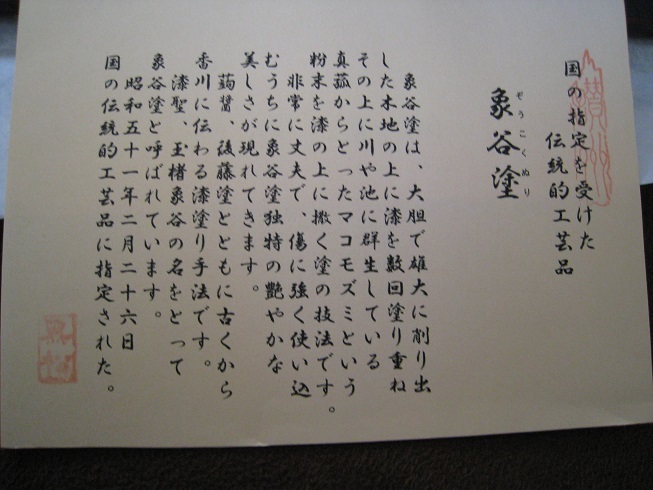 国の指定を受けた
伝統的工芸品
象谷塗
ぞうこくぬり
象谷塗は、大胆で雄大に削り出
した木地の上に漆を数回塗り重ね
その上に川や池に群生している
真菰からとったマコモズミという
粉末を漆の上に撒く塗の技法です。
非常に丈夫で、傷に強く使い込
むうちに象谷塗独特の艶やかな
美しさが現れてきます。
蒟醤、後藤塗とともに古くから
香川に伝わる漆塗り手法です。
漆聖、玉楮象谷の名をとって
象谷塗と呼ばれています。
昭和五十一年二月二十六日
国の伝統的工芸品に指定された。